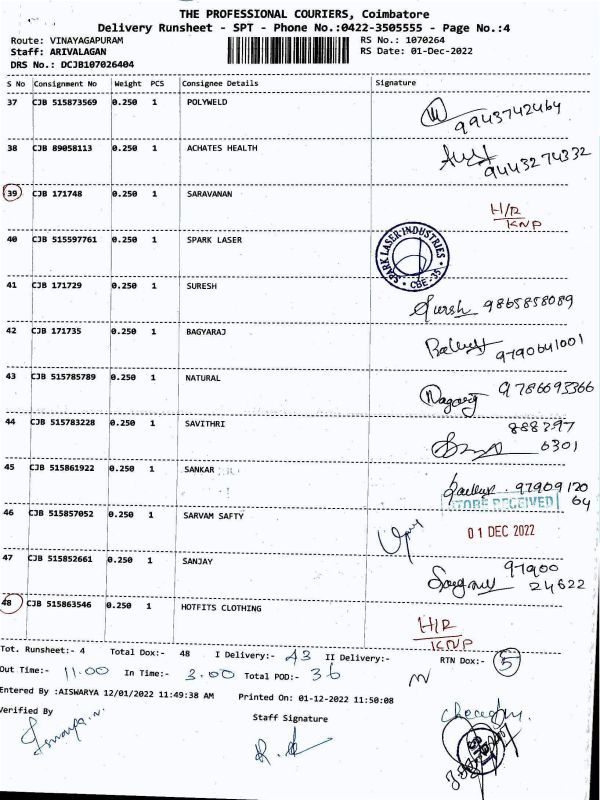 THE PROFESSIONAL COURIERS, Coimbatore
Delivery Runsheet - SPT - Phone No.:0422-3505555 - Page No.:4
Route: VINAYAGAPURAM RS No.: 1070264
Staff: ARIVALAGAN RS Date: 01-Dec-2022
DRS No.: DCJB107026404
S No Consignment No Weight PCS Consignee Details Signature
37 CJB 515873569 0.250 1 POLYWELD
9943742464
38 CJB 89058113 0.250 1 ACHATES HEALTH
9443274332
39 CJB 171748 0.250 1 SARAVANAN
H/R
KNP
40 CJB 515597761 0.250 1 SPARK LASER
SPARK LASER INDUSTRIES
CBE-35
41 CJB 171729 0.250 1 SURESH
9865858089
42 CJB 171735 0.250 1 BAGYARAJ
9790641001
43 CJB 515785789 0.250 1 NATURAL
9786693366
44 CJB 515783228 0.250 1 SAVITHRI
888397
6301
45 CJB 515861922 0.250 1 SANKAR
97909120
64
STORE RECEIVED
46 CJB 515857052 0.250 1 SARVAM SAFTY
01 DEC 2022
47 CJB 515852661 0.250 1 SANJAY
97900
24622
48 CJB 515863546 0.250 1 HOTFITS CLOTHING
H/R
KNP
Tot. Runsheet:- 4 Total Dox:- 48 I Delivery:- 43 II Delivery:- RTN Dox:- 5
Out Time:- 11.00 In Time:- 3.00 Total POD:- 36
Entered By :AISWARYA 12/01/2022 11:49:38 AM Printed On: 01-12-2022 11:50:08
Verified By Staff Signature